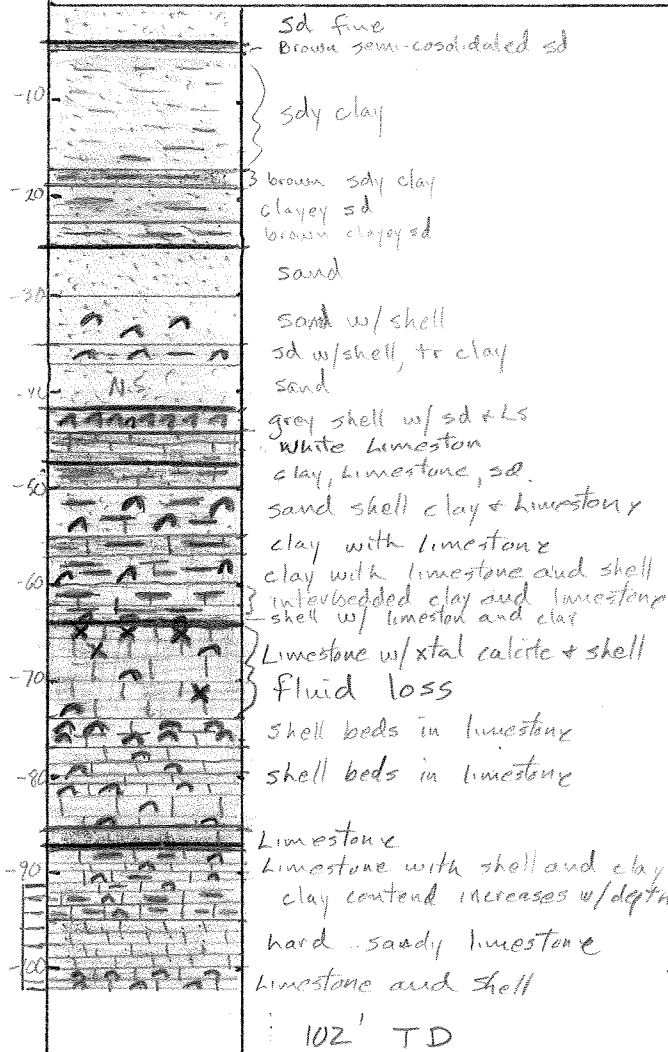 sd fine
Brown semi-cosolidated sd
-10
sdy clay
brown sdy clay
-20
clayey sd
brown clayey sd
sand
-30
sand w/ shell
sd w/shell, tr clay
N.S
sand
-40
grey shell w/ sd & LS
white Limeston
clay, Limestone, sd.
-50
sand shell clay & Limestone
clay with limestone
clay with limestone and shell
-60
interbedded clay and limestone
shell w/ limeston and clay
Limestone w/ xtal calcite & shell
-70
fluid loss
shell beds in limestone
-80
shell beds in limestone
Limestone
-90
Limestone with shell and clay
clay contend increases w/depth
hard sandy limestone
-100
Limestone and shell
102' TD